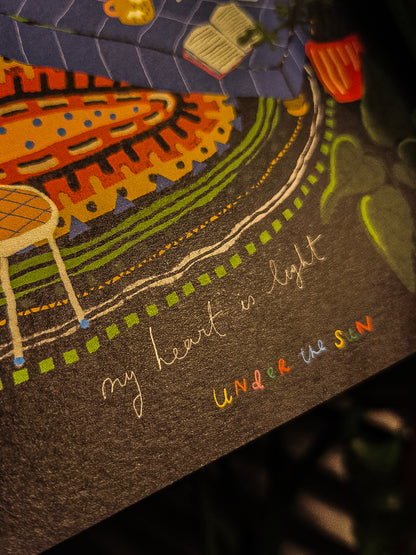 my heart is light
UNdeR the SuN